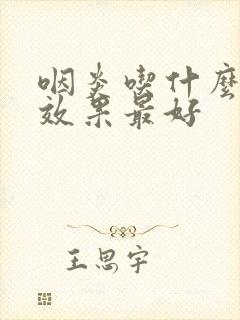 咽炎喫什麼
效果最好
王思宇